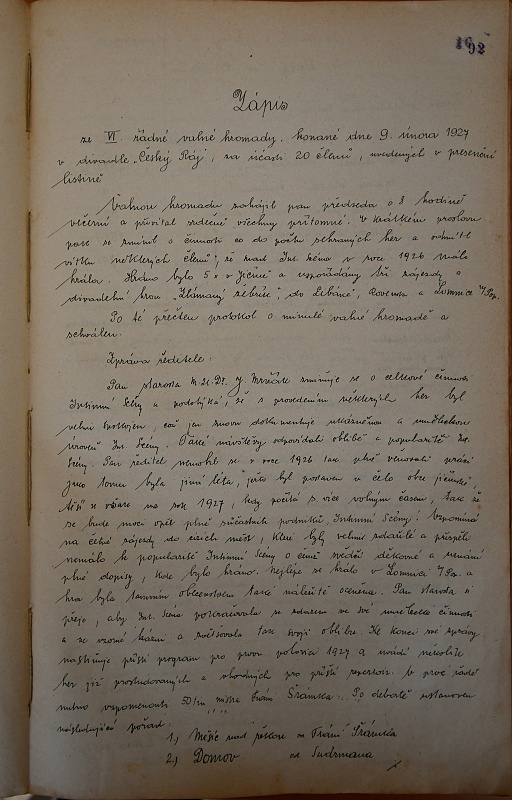 92
Zápis
ze VI. řádné valné hromady, konané dne 9. února 1927
v divadle „Český Ráj", za účasti 20 členů, uvedených v presenční
listině
Valnou hromadu zahájil pan předseda o 8 hodině
večerní a přivítal srdečně všechny přítomné. V krátkém proslovu
pak se zmínil o činnosti co do počtu sehraných her a odmítl
výtku některých členů, že snad Int. scéna v roce 1926 málo
hrála. Hráno bylo 5 x v Jičíně a uspořádány tři zájezdy s
divadelní hrou „Zlámaný žebřík", do Libáně, Rovenska a Lomnice n/Pop.
Po té přečten protokol o minulé valné hromadě a
schválen.
Zpráva ředitele:
Pan starosta M.U.Dr. J. Mrňák zmiňuje se o celkové činnosti
Intimní Scény a podotýká, že s provedením některých her byl
velmi spokojen, což jen znovu dokumentuje ukázněnou a uměleckou
úroveň Int. Scény. Také návštěvy odpovídali oblibě a popularitě Int.
Scény. Pan ředitel nemohl se v roce 1926 tak plně věnovati práci
jako tomu bylo jiná léta, jeho byl postaven v čelo obce jičínské,
těší se však na rok 1927, kdy počítá s více volným časem, tak že
se bude moci opět plně súčastniti podniků Intimní Scény. Vzpomíná
na četné zájezdy do cizích měst, které byly velmi zdařilé a přispěli
nemálo k popularitě Intimní Scény o čemž svědčí děkovné a uznání
plné dopisy, kde bylo hráno. Nejlépe se hrálo v Lomnici n/Pop. a
hra byla tamním obecenstvem také náležitě oceněna. Pan starosta si
přeje, aby Int. Scéna pokračovala se zdarem ve své umělecké činnosti
a ve vzorné kázni a zvětšovala tak svoji oblibu. Ke konci své zprávy
nastiňuje příští program pro prvou polovici 1927 a uvádí několik
her již prostudovaných a vhodných pro příští repertoir. V prvé řadě
nutno vzpomenouti 50tin mistra Fráni Šrámka. Po debatě ustanoven
následující pořad:
1.) Měsíc nad řekou od Fráni Šrámka
2.) Domov od Sudrmana